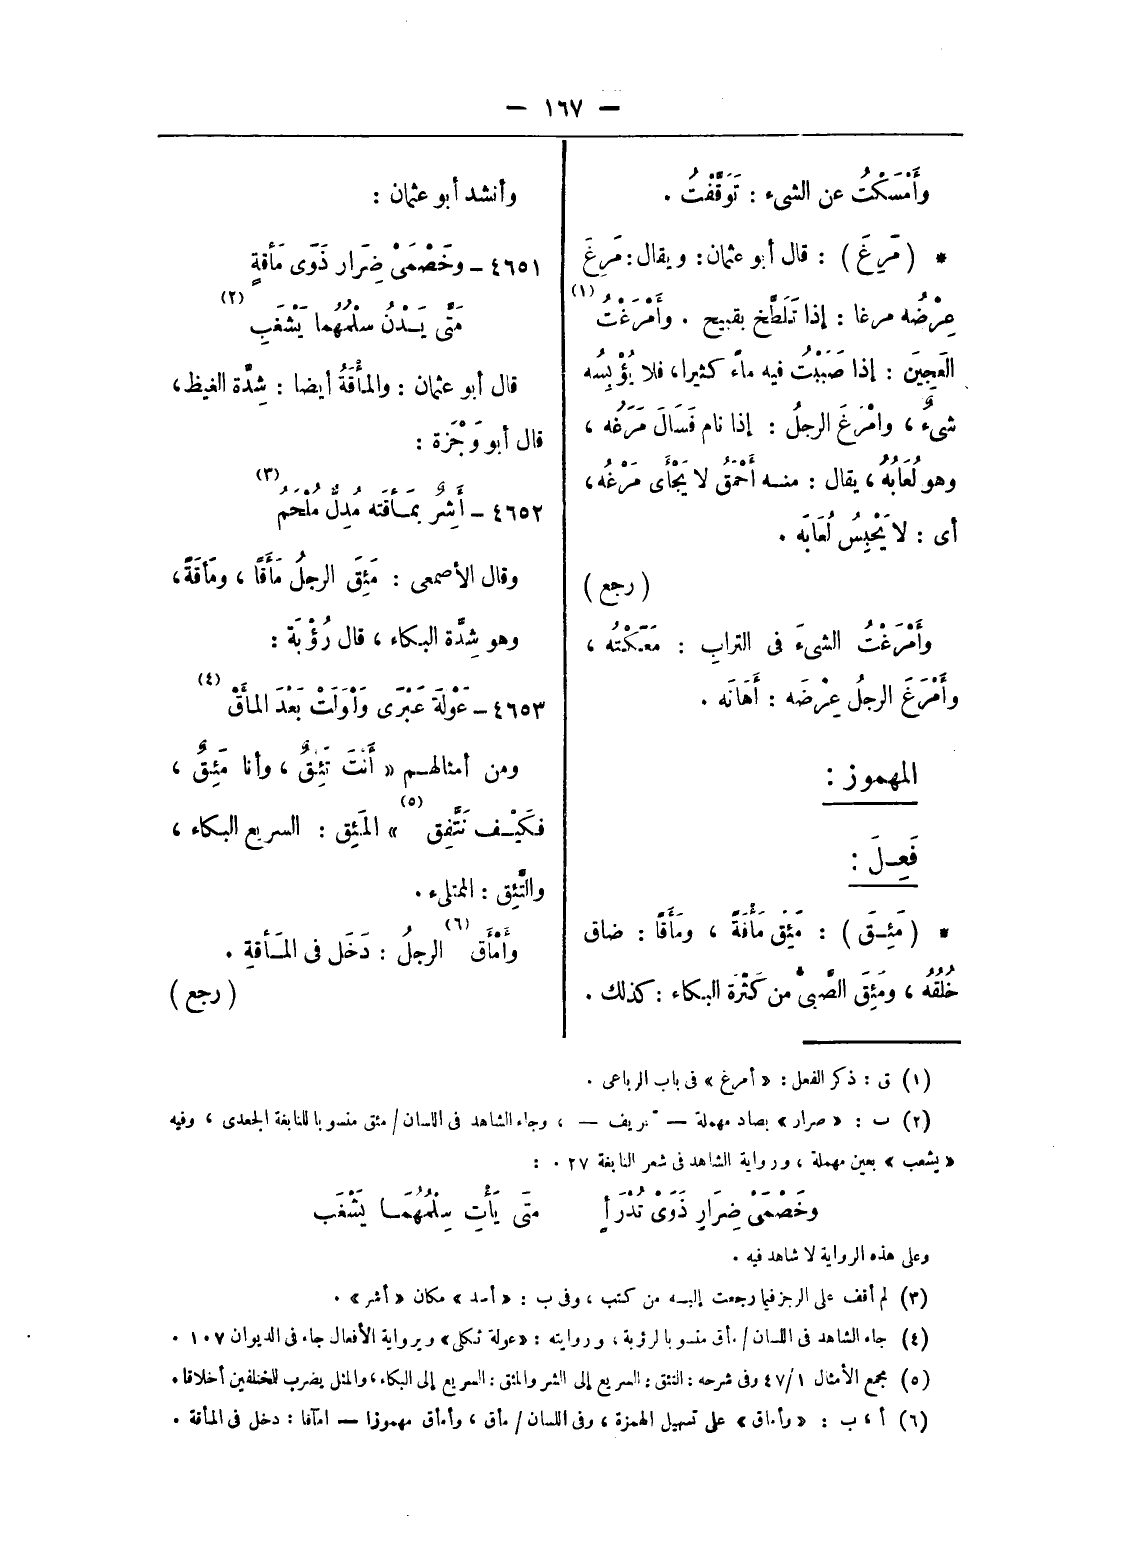 — ١٦٧ —
وأَمْسَكْتُ عن الشىء : تَوَقَّفْتُ .
* ( مَرِغَ ) : قال أبو عثمان : ويقال : مَرِغَ
عِرْضُه مرغا : إذا تَلَطَّخ بقبيح . وأَمْرَغْتُ (١)
العَجِينَ : إذا صَبَبْتُ فيه ماءً كثيرا ، فلا يُؤْبِسُه
شىءٌ ، وامْرَغَ الرجلُ : إذا نام فَسَالَ مَرَغُه ،
وهو لُعَابُهُ ، يقال : منه أَحْمَقُ لا يَجْأَى مَرْغُه ،
أى : لا يَحْبِسُ لُعَابَه .
( رجع )
وأَمْرَغْتُ الشىءَ فى الترابِ : مَعَكْتُه ،
وأَمْرَغَ الرجلُ عِرْضَه : أَهَانَه .
المهموز :
فَعِلَ :
* ( مَئِقَ ) : مَئِقَ مَأْقَةً ، ومَأَقًا : ضاق
خُلُقُه ، ومَئِقَ الصَّبىُّ من كَثْرَة البكاء : كذلك .
وأنشد أبو عثمان :
٤٦٥١ – وخَصْمَىْ ضِرَار ذَوَى مَأقةٍ
مَتَى يَدْنُ سلْمُهما يَشْغَبِ (٢)
قال أبو عثمان : والمأْقَةُ أيضا : شِدَّة الغيظ ،
قال أبو وَجْزَة :
٤٦٥٢ – أَشِرٌ بمَأقَته مُدِلٌّ مُلْحَمُ (٣)
وقال الأصمعى : مَئِقَ الرجلُ مَأَقًا ، ومَأقَةً ،
وهو شِدَّة البكاء ، قال رُؤْبَة :
٤٦٥٣ – عَوْلَةَ عَبْرَى وَلْوَلَتْ بَعْدَ المأَقْ (٤)
ومن أمثالهم « أَنْتَ تَئِقٌ ، وأنا مَئِقٌ ،
فكَيْف نَتَّفِق (٥) » المَئِق : السريع البكاء ،
والتَّئِق : الممتلىء .
وأَمْأَق (٦) الرجلُ : دَخَل فى المَأقةِ .
( رجع )
(١) ق : ذكر الفعل : « أمرغ » فى باب الرباعى .
(٢) ب : « صرار » بصاد مهملة — تحريف — ، وجاء الشاهد فى اللسان / مئق منسوبا للنابغة الجعدى ، وفيه
« يشعب » بعين مهملة ، ورواية الشاهد فى شعر النابغة ٢٧ . :
وخَصْمَىْ ضِرَارٍ ذَوَىْ تُدْرَأٍ متَى يَأْتِ سِلْمُهُمَا يَشْغَب
وعلى هذه الرواية لا شاهد فيه .
(٣) لم أقف على الرجز فيما رجعت إليه من كتب ، وفى ب : « أسد » مكان « أشر » .
(٤) جاء الشاهد فى اللسان / مأق منسوبا لرؤبة ، وروايته : « عولة ثكلى » وبرواية الأفعال جاء فى الديوان ١٠٧ .
(٥) مجمع الأمثال ٤٧/١ وفى شرحه : التئق : السريع إلى الشر والمئق : السريع إلى البكاء ، والمثل يضرب للمختلفين أخلاقا .
(٦) أ ، ب : « وأماق » على تسهيل الهمزة ، وفى اللسان / مأق ، وأمأق مهموزا — امآقا : دخل فى المأقة .